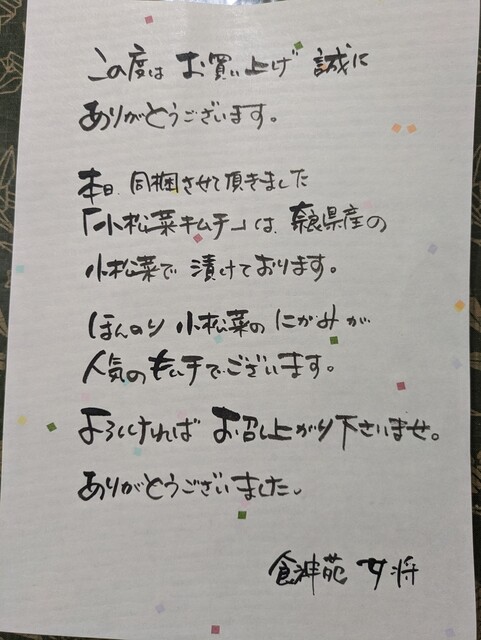 この度は お買い上げ 誠に
ありがとうございます。
本日、同梱させて頂きました
「小松菜キムチ」は、奈良県産の
小松菜で 漬けております。
ほんのり 小松菜の にがみが
人気のキムチでございます。
よろしければ お召し上がり下さいませ。
ありがとうございました。
食神苑 女将